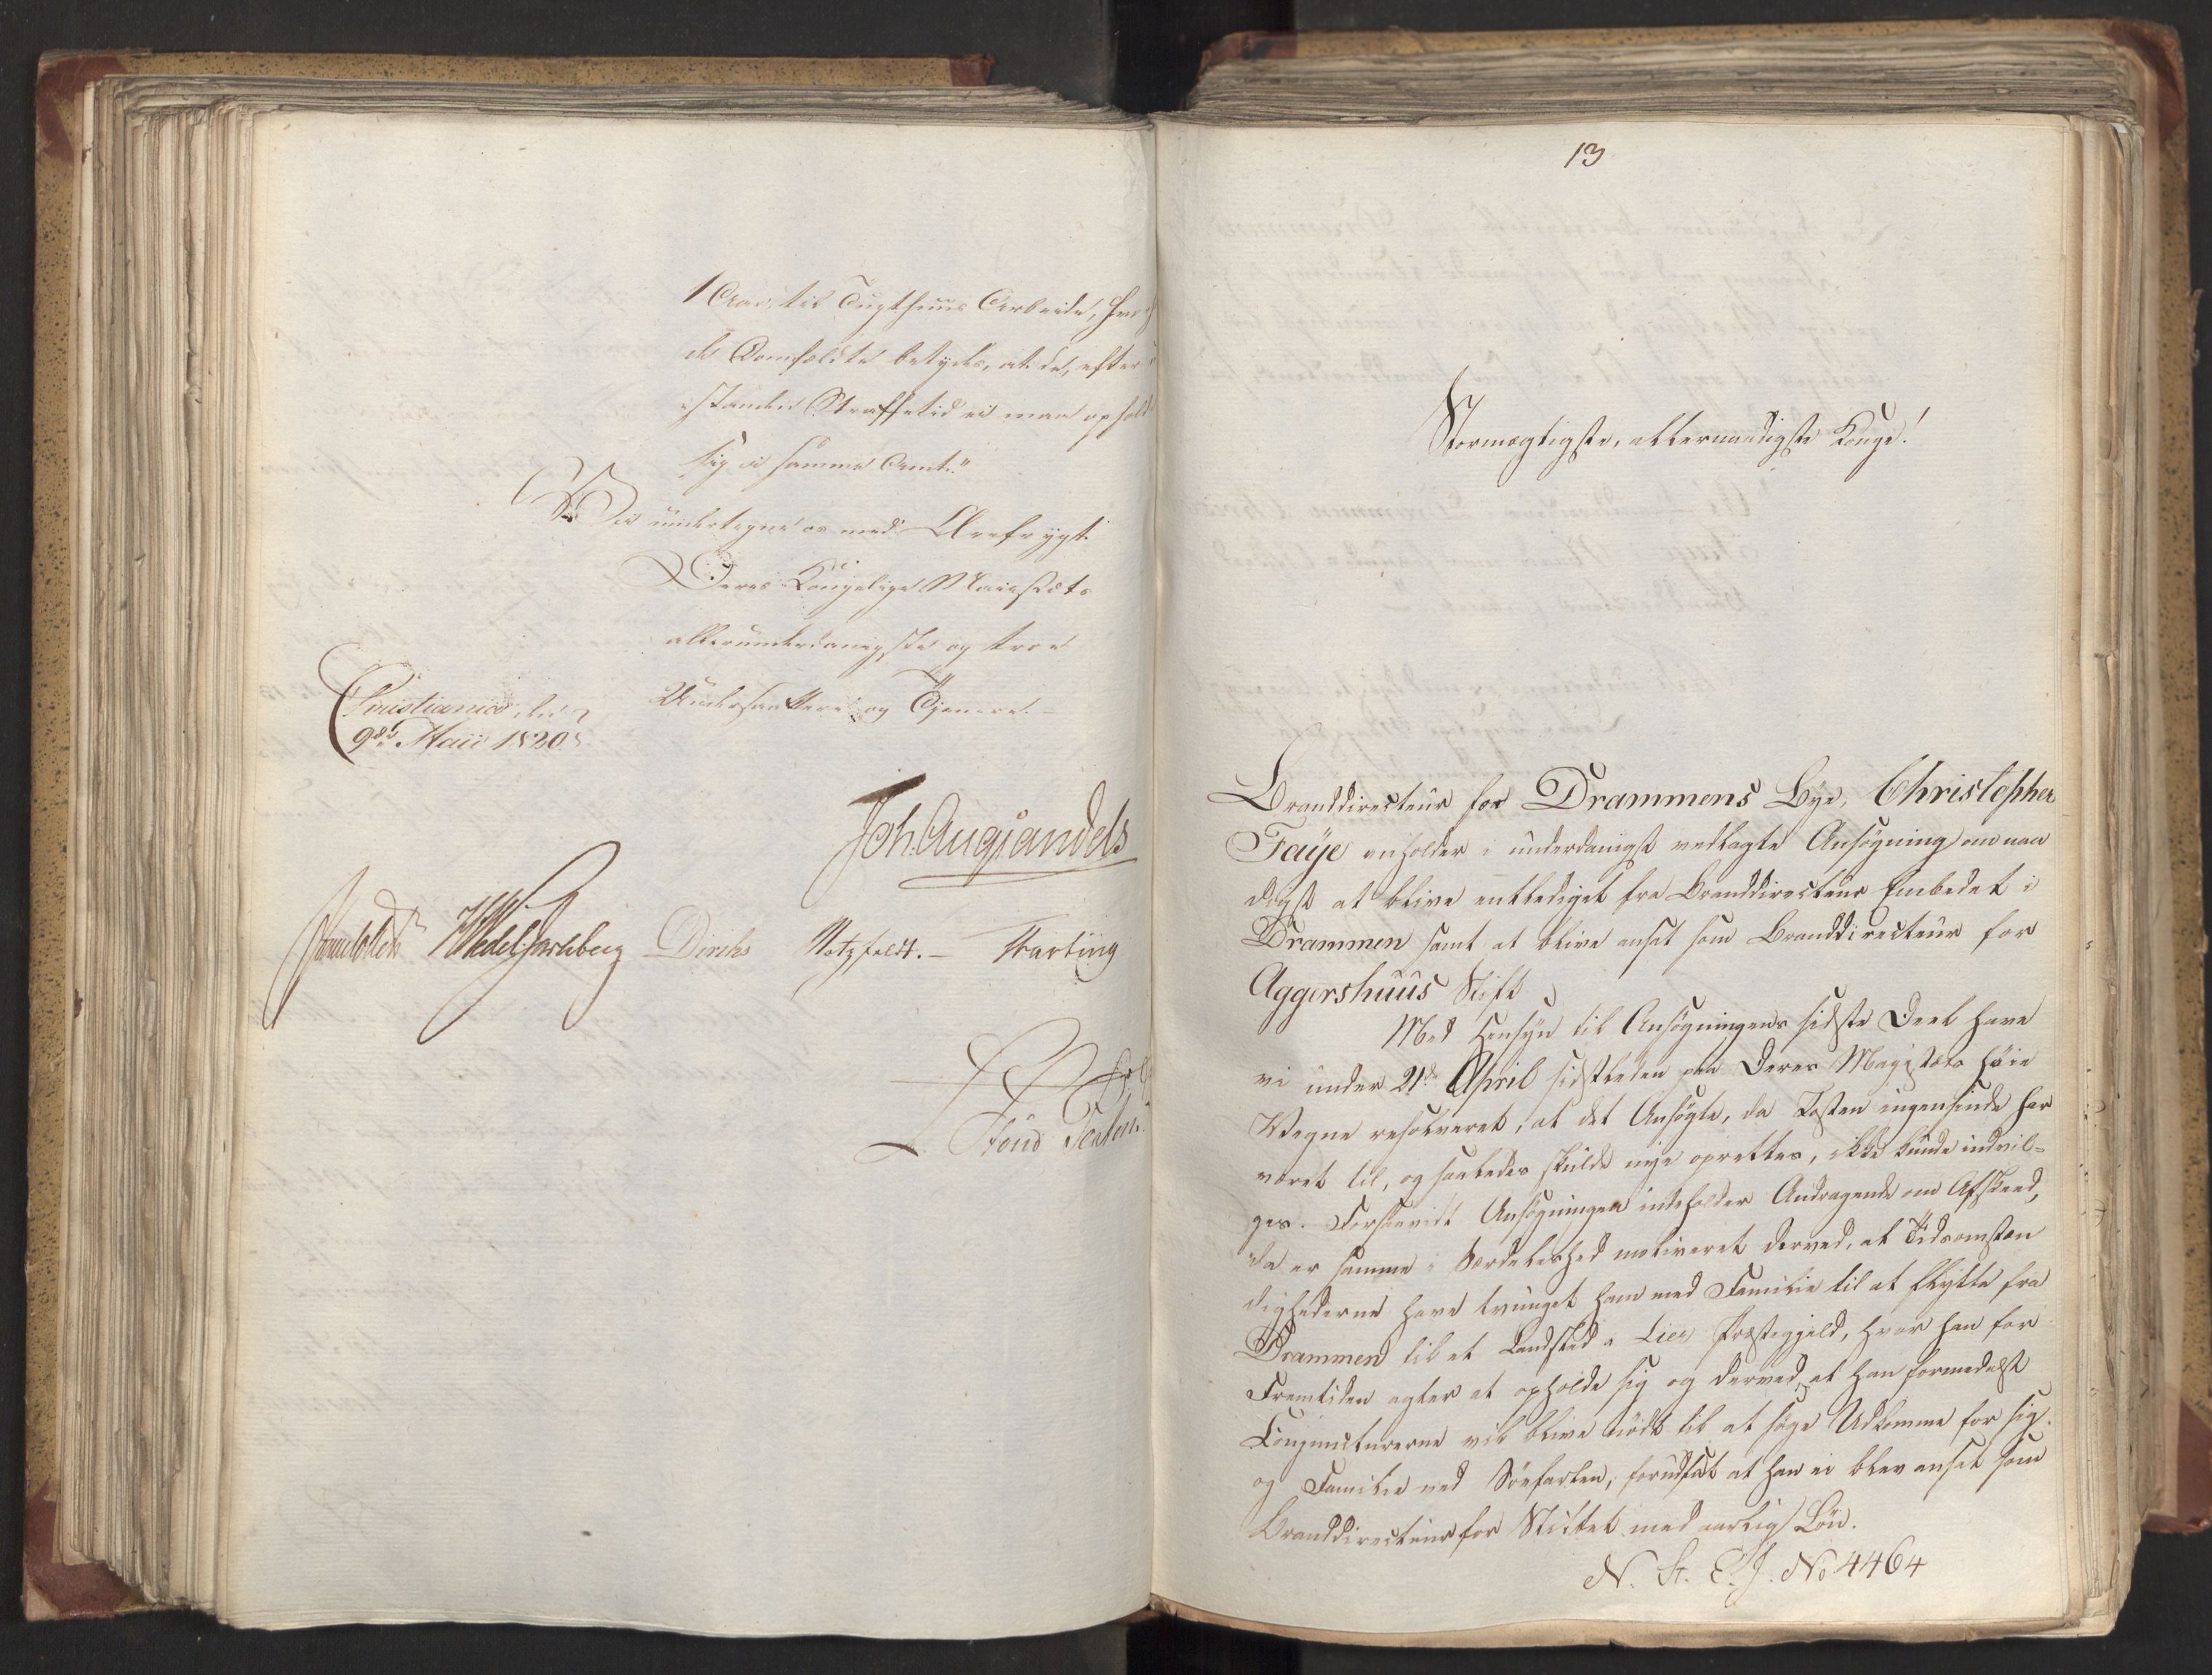 1 Aar til Tugthuus Arbeide, hvor
de Domfældte betydes, at de, efter
standen Straffetid ei maa ophold
sig i samme Amt."
Vi undertegne os med Ærefrygt
Deres Kongelige Majestæts
allerunderdanigste og troe
Undersaattere og Tjenere.
Christiania den
9de Maii 1820
Joh. Aug Sandels
Sommerhielm HWedel Jarlsberg Diriks Motzfeldt.- Krarting
Holst
13
Stormægtigste, allernaadigste Konge!
Branddirecteur for Drammens Bye, Christopher
Faye anholder i underdanigst vedlagte Ansøgning om naa
digst at blive entlediget fra Branddirecteur Embedet i
Drammen samt at blive ansat som Branddirecteur for
Aggershuus Stift
Med Hensyn til Ansøgningens sidste Deel have
vi under 21de April sidstleden paa Deres Majestæts høie
Vegne resolveret, at det Ansøgte, da Posten ingensinde har
været til, og saaledes skulde nye oprettes, ikke kunde indvil-
ges. Forsaavidt Ansøgningen indeholder Andragende om Afskeed,
da er samme i Særdeleshed motiveret derved, at Tidsomstæn
dighederne have tvunget ham med Familie til at flytte fra
Drammen til et Landsted i Lier Præstegjeld, hvor han for
Fremtiden agter at opholde sig og derved, at han formedelst
Conjuncturerne vil blive nødt til at søge Udkomme for sig
og Familie ved Søefarten, forudsat at han ei blev ansat som
Branddirecteur for Stiftet med aarlig Løn.
N. St. E. J. No 4464